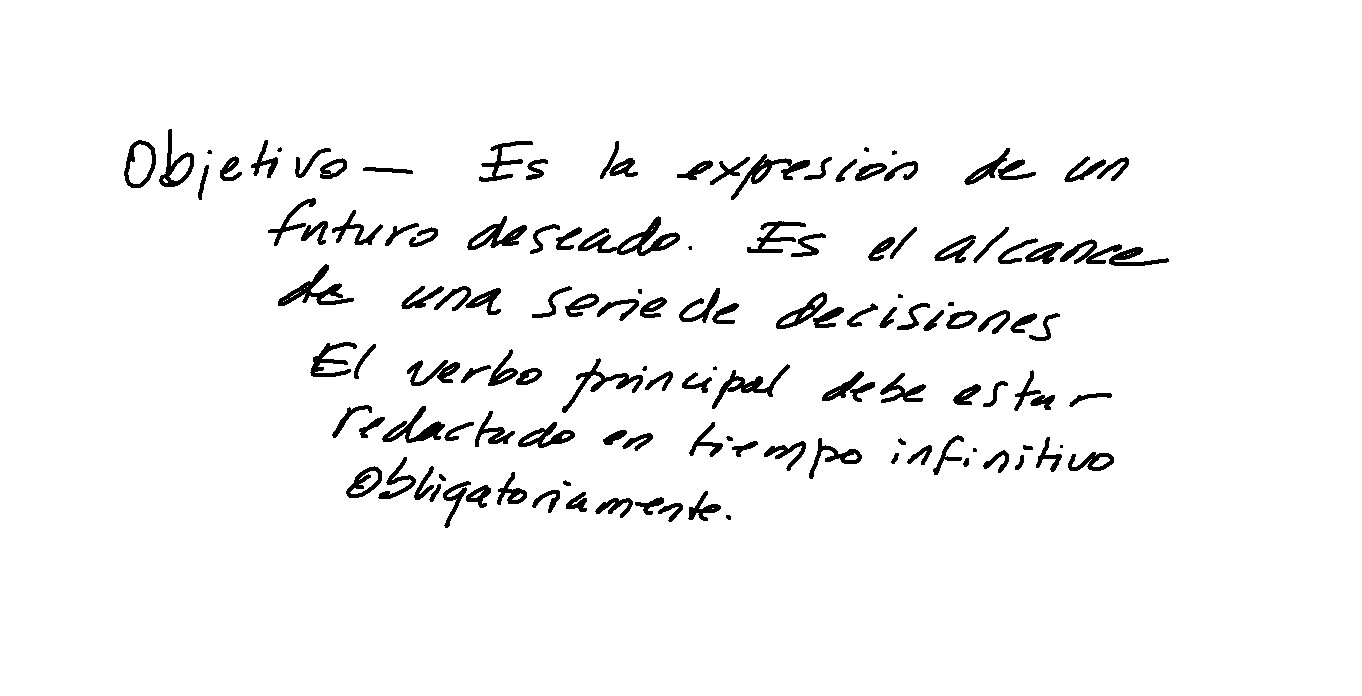 Objetivo — Es la expresión de un
futuro deseado. Es el alcance
de una serie de decisiones
El verbo principal debe estar
redactado en tiempo infinitivo
Obligatoriamente.